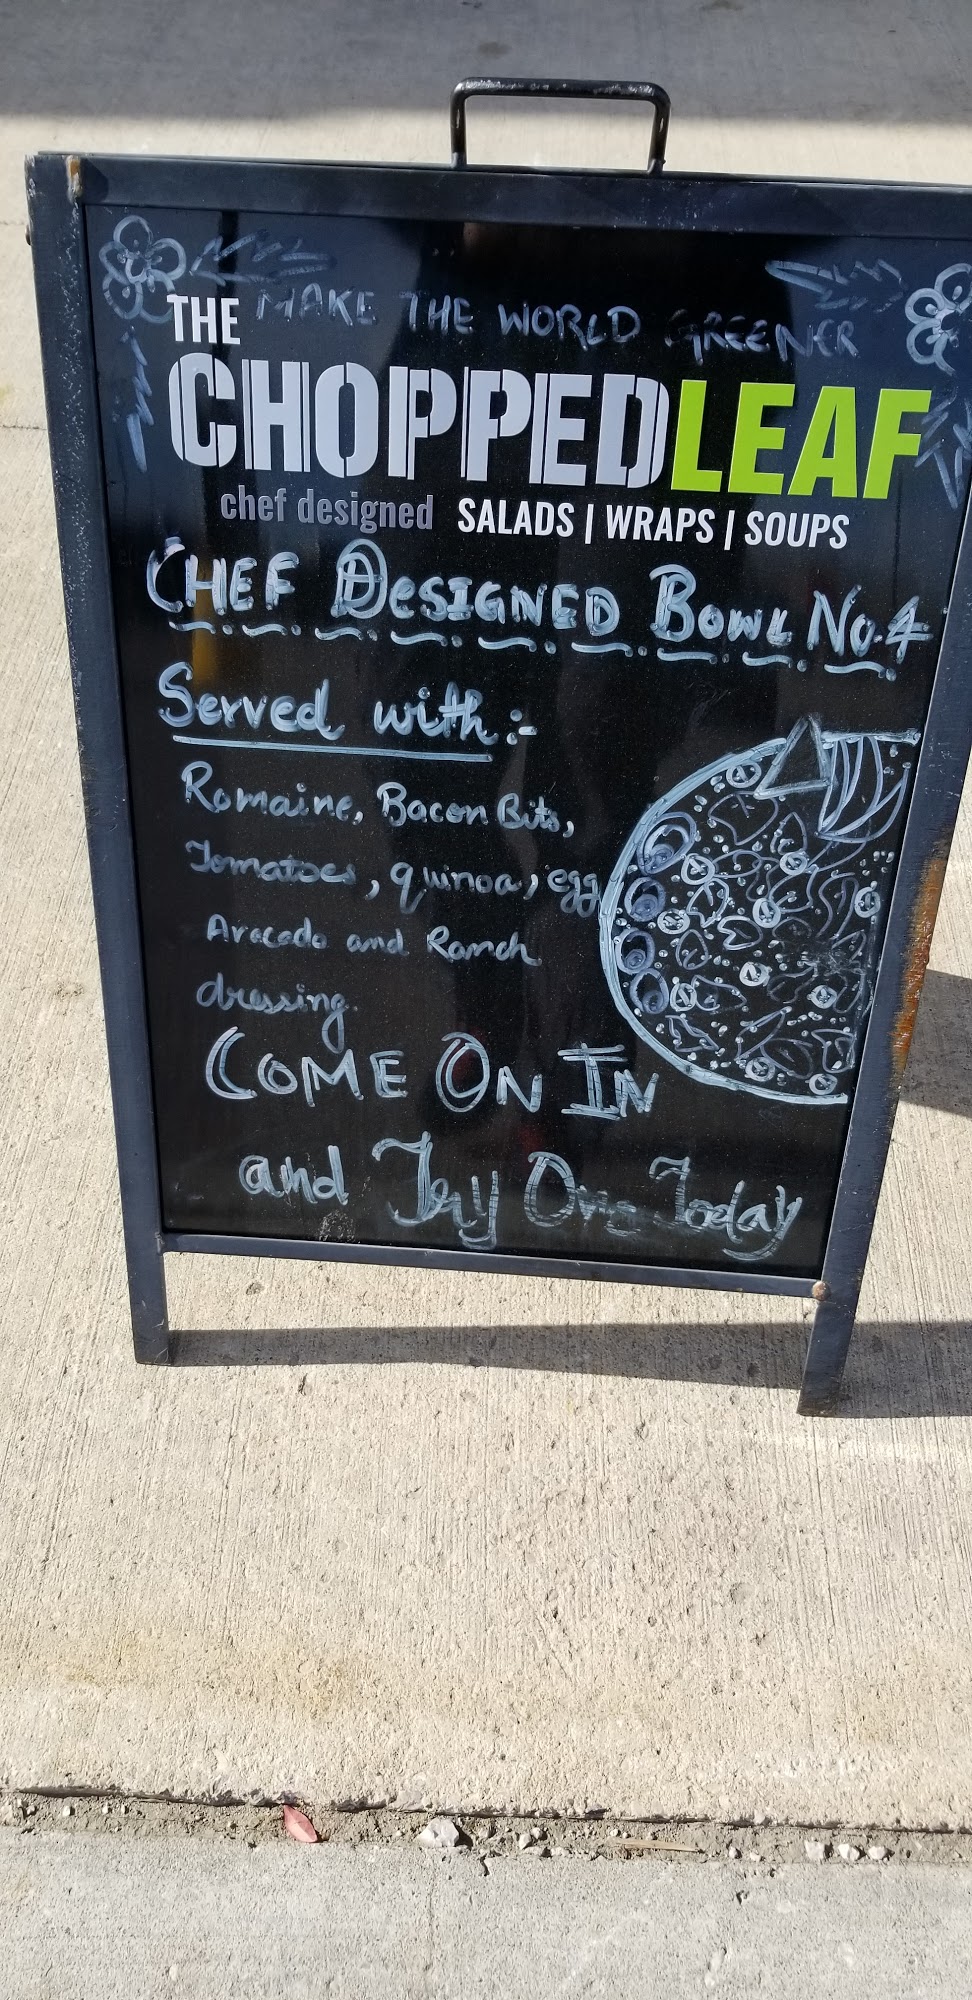 MAKE THE WORLD GREENER
THE
CHOPPEDLEAF
chef designed SALADS | WRAPS | SOUPS
CHEF DESIGNED BOWL No.4
Served with:-
Romaine, Bacon Bits,
Tomatoes, quinoa, egg
Avocado and Ranch
dressing.
COME ON IN
and Try One Today